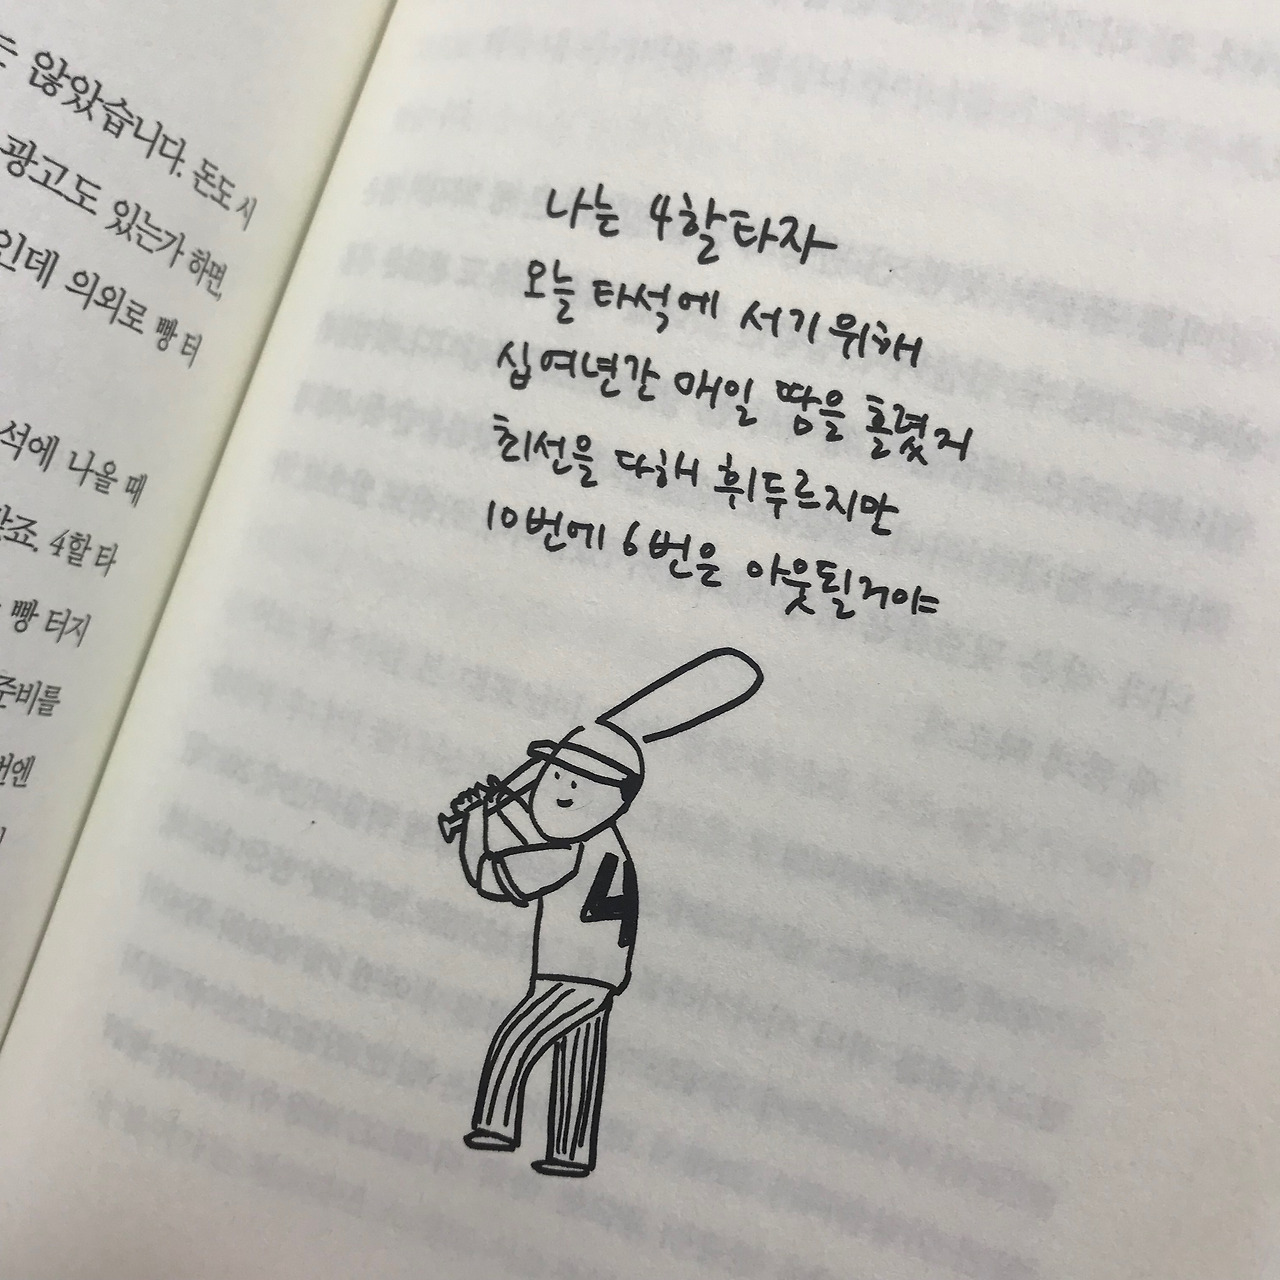 않았습니다. 돈도 시
광고도 있는가 하면,
인데 의외로 빵 터
석에 나올 때
4할 타
빵 터지
준비를
나는 4할타자
오늘 타석에 서기 위해
십여년간 매일 땀을 흘렸지
최선을 다해 휘두르지만
10번에 6번은 아웃될거야
4